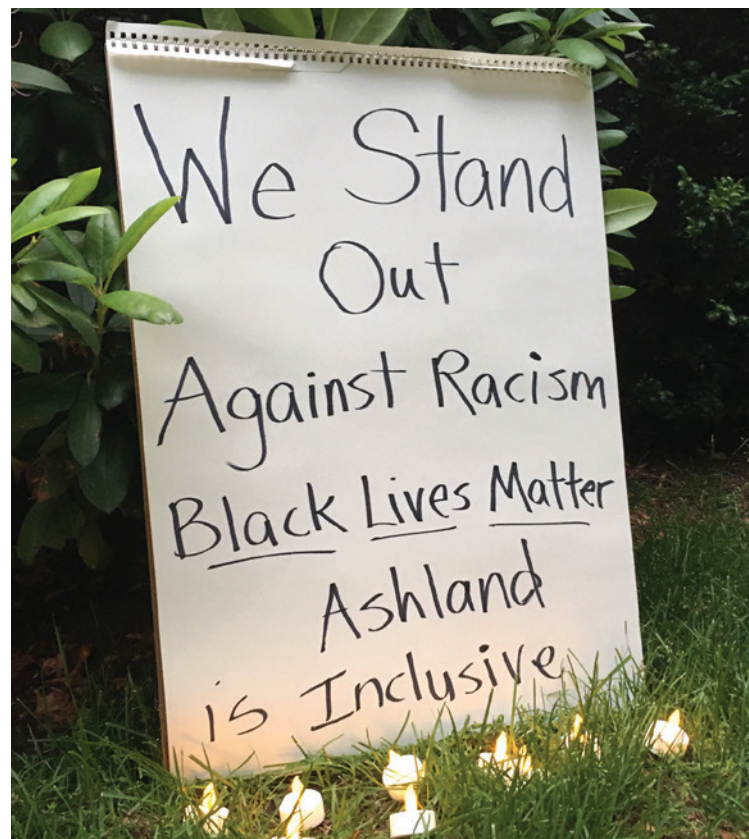 We Stand
Out
Against Racism
Black Lives Matter
Ashland
is Inclusive